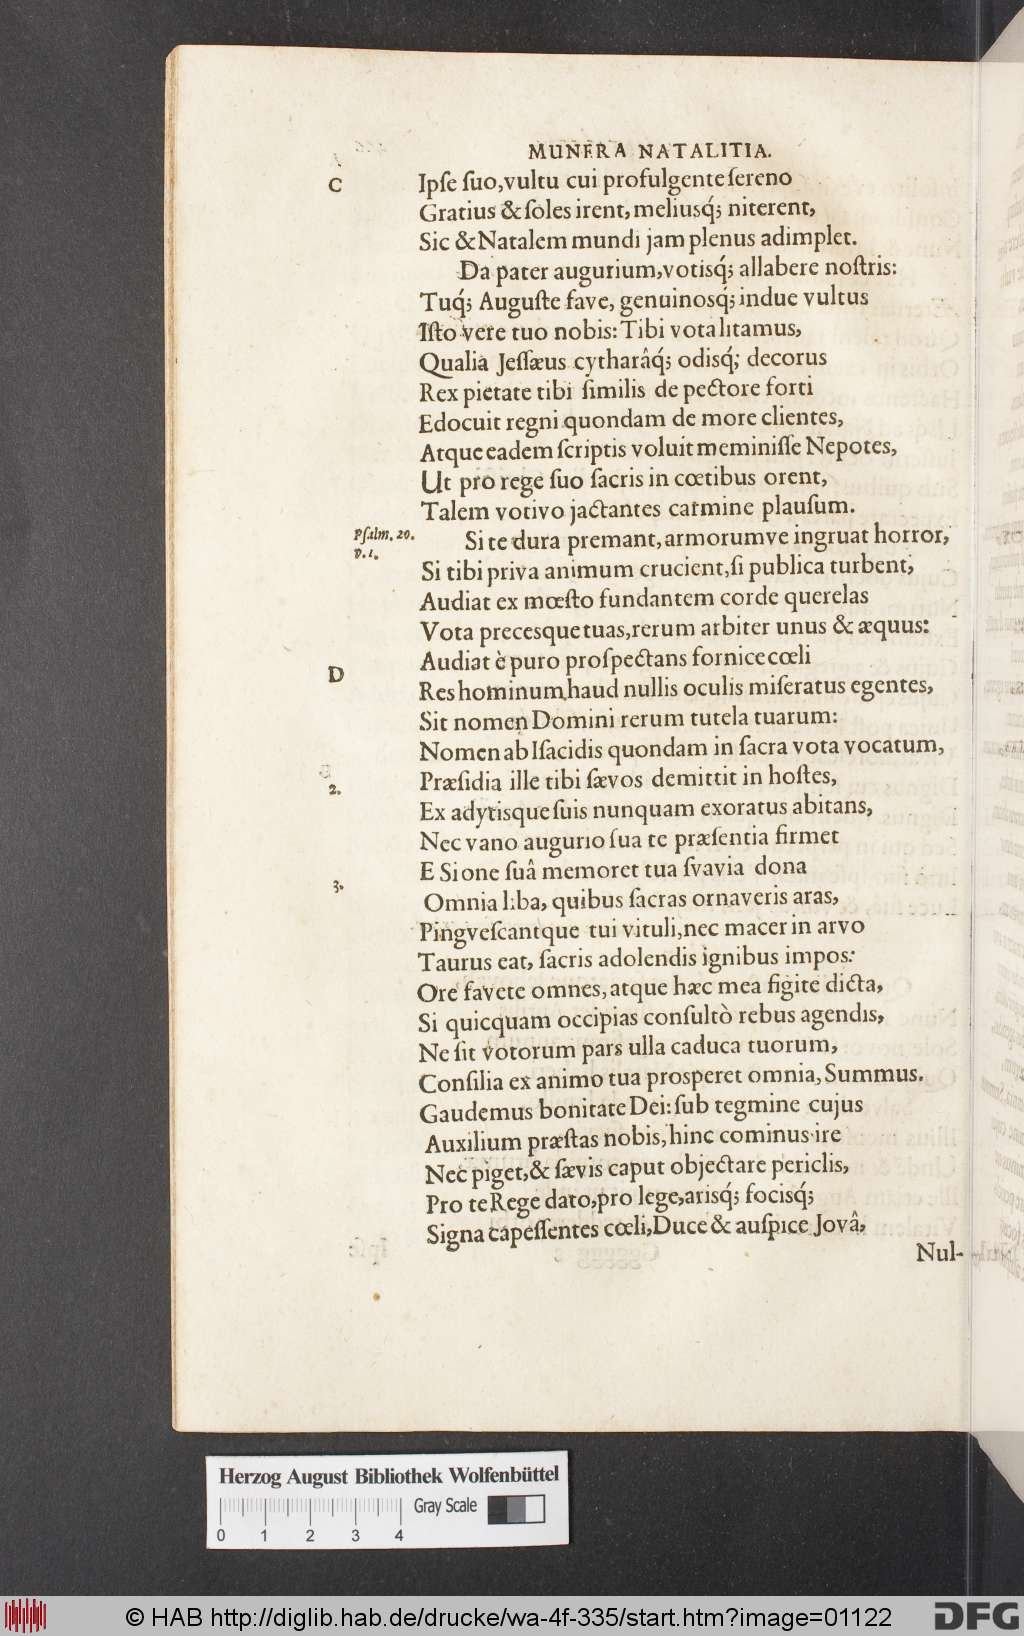 MUNERA NATALITIA.
C
Ipſe ſuo, vultu cui profulgente ſereno
Gratius & ſoles irent, meliusq́; niterent,
Sic & Natalem mundi jam plenus adimplet.
Da pater augurium, votisq́; allabere noſtris:
Tuq́; Auguſte fave, genuinosq́; indue vultus
Iſto vere tuo nobis: Tibi vota litamus,
Qualia Jeſſæus cytharâq́; odisq́; decorus
Rex pietate tibi ſimilis de pectore forti
Edocuit regni quondam de more clientes,
Atque eadem ſcriptis voluit meminiſſe Nepotes,
Ut pro rege ſuo ſacris in cœtibus orent,
Talem votivo jactantes carmine plauſum.
Pſalm. 20.
v. 1.
Si te dura premant, armorumve ingruat horror,
Si tibi priva animum crucient, ſi publica turbent,
Audiat ex mœſto fundantem corde querelas
Vota precesque tuas, rerum arbiter unus & æquus:
Audiat è puro proſpectans fornice cœli
D
Res hominum, haud nullis oculis miſeratus egentes,
Sit nomen Domini rerum tutela tuarum:
Nomen ab Iſacidis quondam in ſacra vota vocatum,
2.
Præſidia ille tibi ſævos demittit in hoſtes,
Ex adytisque ſuis nunquam exoratus abitans,
Nec vano augurio ſua te præſentia firmet
E Sione ſuâ memoret tua ſvavia dona
3.
Omnia liba, quibus ſacras ornaveris aras,
Pingveſcantque tui vituli, nec macer in arvo
Taurus eat, ſacris adolendis ignibus impos:
Ore favete omnes, atque hæc mea figite dicta,
Si quicquam occipias conſultò rebus agendis,
Ne ſit votorum pars ulla caduca tuorum,
Conſilia ex animo tua proſperet omnia, Summus.
Gaudemus bonitate Dei: ſub tegmine cujus
Auxilium præſtas nobis, hinc cominus ire
Nec piget, & ſævis caput objectare periclis,
Pro te Rege dato, pro lege, arisq́; focisq́;
Signa capeſſentes cœli, Duce & auſpice Jovâ,
Nul-
Herzog August Bibliothek Wolfenbüttel
Gray Scale
0 1 2 3 4
© HAB http://diglib.hab.de/drucke/wa-4f-335/start.htm?image=01122
DFG